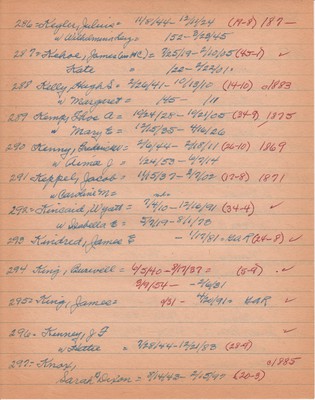 286 = Kegler, Julius = 11/8/44 - 12/14/24 (19-8) 187-
w Wilhelmina = 152 - 3/23/45
287 = Kehoe, James = 7/25/19 - 2/10/05 (45-1) ✓
Kate /22 - 2/22/01 =
288 Kelly, Hugh S = 2/26/41 - 10/13/10 (14-10) 1883
w Margaret = /45 - /11
289 Kemp, A = 10/24/28 - 10/21/05 (34-9) 1875
w Mary E = 12/15/35 - 4/16/26
290 Kenny, Frederick = 2/6/44 - 2/18/11 (26-10) 1869
w Anna J. = 1/24/53 - 4/7/14
291 Keppel, Jacob = 11/15/37 - 2/7/07 (17-8) 1871
w Caroline M =
292 = Kincaid, Wyatt = 7/4/10 - 12/16/91 (34-4) ✓
w Isabella E = 2/9/19 - 8/1/78
293 Kindred, James E - 1/17/81 = BAR (24-8) ✓
294 King, Burwell = 6/5/40 - 9/17/37 = (5-9) ✓
3/9/54 - 2/6/31
295 = King, James = 4/31 - 4/26/91 = BAR ✓
296 = Kinney, J G ✓
w Hettie = 7/28/44 - 12/21/83 (28-9)
297 = Knox, 1885
Sarah Dixon = 8/14/43 - 2/15/47 (20-3)